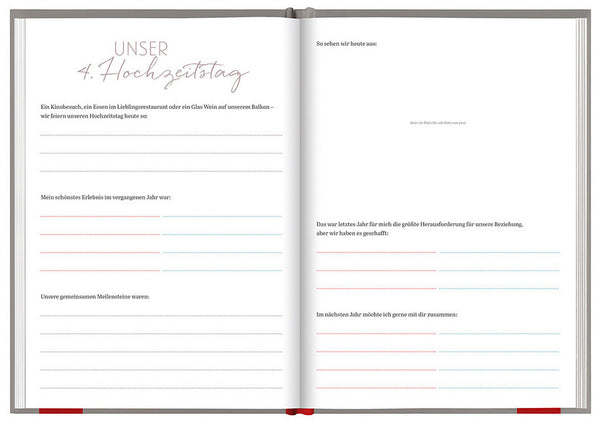 UNSER
4. Hochzeitstag
Ein Kinobesuch, ein Essen im Lieblingsrestaurant oder ein Glas Wein auf unserem Balken –
wir feiern unseren Hochzeitstag heute so:
Mein schönstes Erlebnis im vergangenen Jahr war:
Unsere gemeinsamen Meilensteine waren:
So sehen wir heute aus:
Hier ist Platz für ein Foto von euch
Das war letztes Jahr für mich die größte Herausforderung für unsere Beziehung,
aber wir haben es geschafft:
Im nächsten Jahr möchte ich gerne mit dir zusammen: